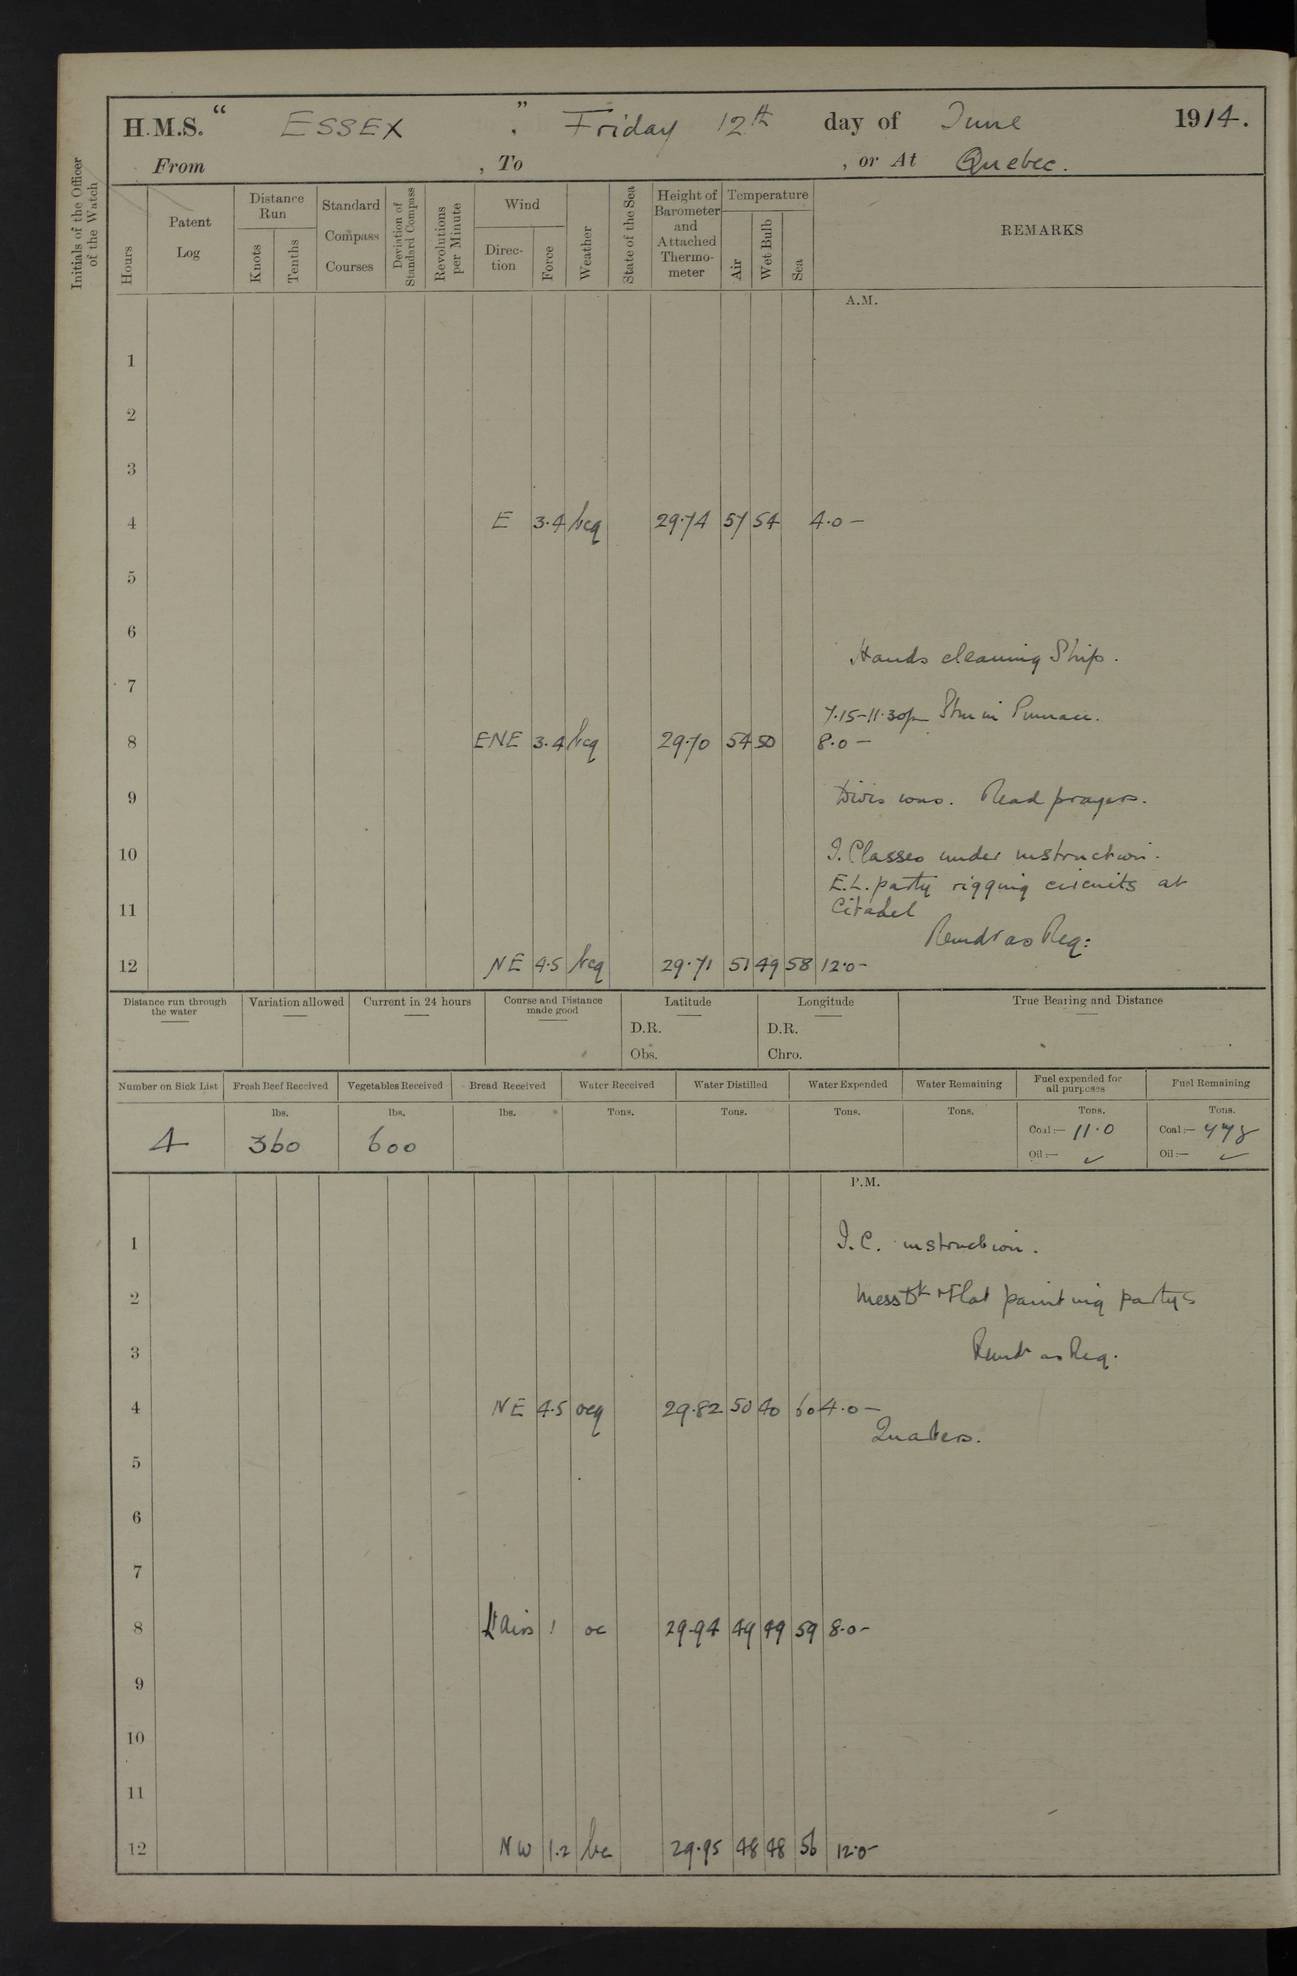 H.M.S. “ ESSEX ” , Friday 12th day of June 1914.
From , To , or At Quebec.
Initials of the Officer of the Watch
Hours
Patent Log
Distance Run
Knots
Tenths
Standard Compass Courses
Deviation of Standard Compass
Revolutions per Minute
Wind
Direction
Force
Weather
State of the Sea
Height of Barometer and Attached Thermometer
Temperature
Air
Wet Bulb
Sea
REMARKS
A.M.
1
2
3
4 E 3.4 bcq 29.74 57 54 4.0 —
5
6
Hands cleaning Ship.
7
7.15-11.30pm Stm in Pinnace.
8 ENE 3.4 bcq 29.70 54 50 8.0 —
9 Divisions. Read prayers.
10 I. Classes under instruction.
E.L. party rigging circuits at
11 Citadel
Remdr as Req:
12 NE 4.5 bcq 29.71 51 49 58 12.0 -
Distance run through the water
Variation allowed
Current in 24 hours
Course and Distance made good
Latitude
D.R.
Obs.
Longitude
D.R.
Chro.
True Bearing and Distance
Number on Sick List
Fresh Beef Received
Vegetables Received
Bread Received
Water Received
Water Distilled
Water Expended
Water Remaining
Fuel expended for all purposes
Fuel Remaining
lbs. lbs. lbs. Tons. Tons. Tons. Tons. Tons. Tons.
4 360 600
Coal:— 11.0 Coal:— 778
Oil:— ✓ Oil:— ✓
P.M.
1 I.C. instruction.
2 Mess Dk & Flat painting partys
3 Remdr as Req.
4 NE 4.5 ocq 29.82 50 40 60 4.0 —
Quarters.
5
6
7
8 Lt Airs 1 oc 29.94 49 49 59 8.0 -
9
10
11
12 NW 1.2 bc 29.95 48 48 56 12.0 -